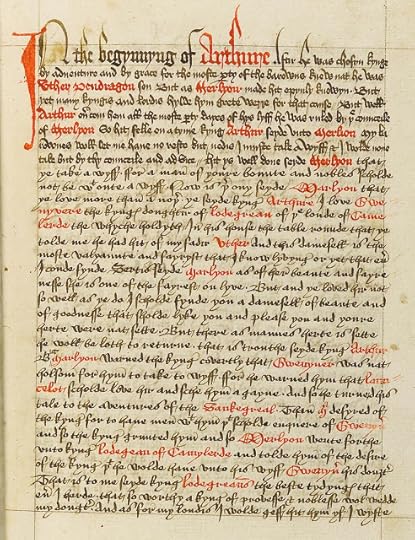 In the begynnyng of Arthure . aftir he was chosyn kynge
by adventure and by grace for the moste party of the barowns knew nat he was
Uther Pendragon son But as Merlyon made hit opynly knowyn . But
yet many kyngis and lordis hylde hym grete werre for that cause . But well
Arthur ovir com hem all the moste party dayes of hys lyff he was ruled by þe counceile
of Merlyon . So hit felle on a tyme kyng Arthur seyde unto Merlion my
barownes woll let me have no reste but nedis I muste take a wyff & I wolde none
take but by thy counceile and advice . hit ys well done seyde Merlyon that
ye take a wyff . for a man of youre bounté and nobles scholde
not be wtoute a wyff . Now is þer ony seyde Marlyon that
ye love more than a noþer ye seyde kyng Arthure I love Gwe
nyvere the kynges doughtir of lodegrean of þe londe of Came
lerde the whyche holdyth in his house the table rounde that ye
tolde me he had hit of my fadir Uther And this damesell is the
moste valyaunte and fayryst that I know lyvyng or yet that ev
I coude fynde . Sertis seyde Marlyon as of her beaute and fayre
nesse she is one of the fayrest on lyve . But and ye loved hir not
so well as ye do I scholde fynde you a damesell of beaute and
of goodnesse that sholde lyke you and please you and youre
herte were nat sette . But there as mannes herte is sette
he woll be loth to returne . that is trouthe seyde kyng Arthur
But Marlyon warned the kyng covertly that Gwenyver was nat
holsom for hym to take to wyff . for he warned hym that laun
celot scholde love hir and sche hym a gayne . And so he turned his
tale to the aventures of the Sankegreal . Than he desyred of
the kyng for to have men wt hym þt scholde enquere of Gwenyver
and so the kyng graunted hym and so Merlyon wente forthe
unto kyng lodegean of Camylerde and tolde hym of the desire
of the kyng þt he wolde have unto his wyff Gwenyver his dought
That is to me seyde kyng lodegreauns the beste tydynges that
ev I herde that so worthy a kyng of prouesse & noblesse wol wedde
my dought . And as for my londis I wolde geff hit hym yf I wyste